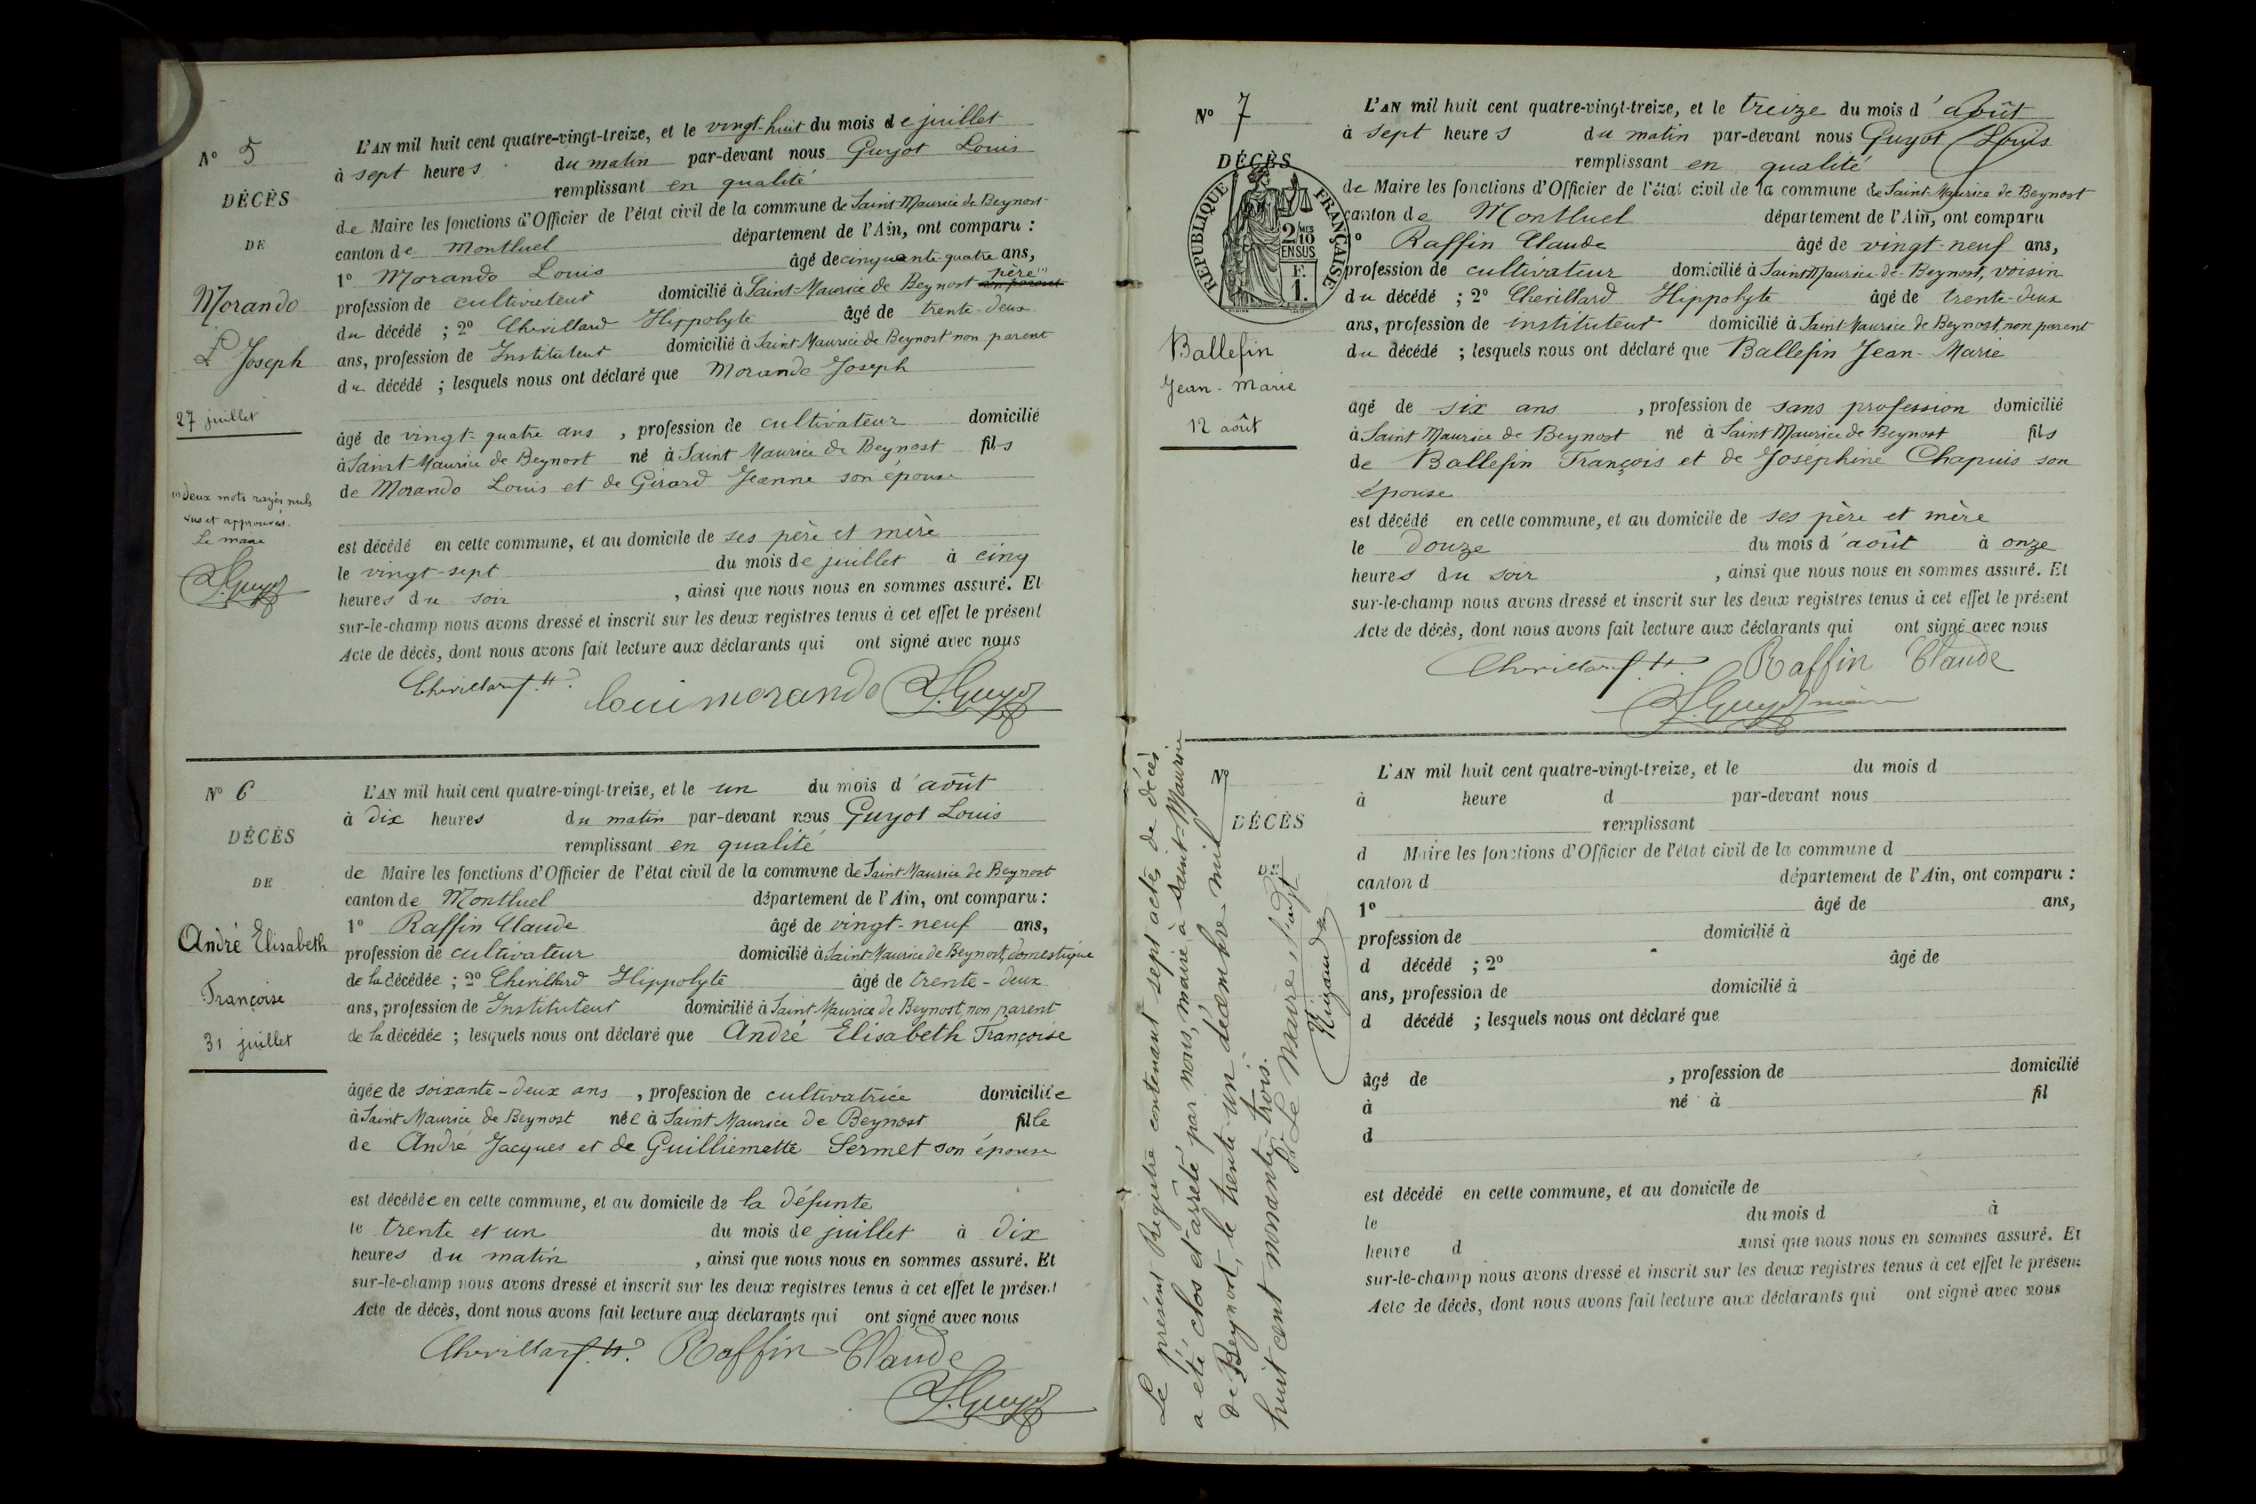 N° 5
DÉCÈS
DE
Morando
Joseph
27 juillet
(1) deux mots rayés nuls
vus et approuvés.
Le maire
L. Guyot
L'AN mil huit cent quatre-vingt-treize, et le vingt-huit du mois de juillet
à sept heures du matin par-devant nous Guyot Louis
remplissant en qualité
de Maire les fonctions d'Officier de l'état civil de la commune de Saint-Maurice de Beynost
canton de Montluel département de l'Ain, ont comparu :
1° Morando Louis âgé de cinquante-quatre ans,
profession de cultivateur domicilié à Saint-Maurice de Beynost non parent père (1)
du décédé ; 2° Chevillard Hippolyte âgé de trente-deux
ans, profession de Instituteur domicilié à Saint Maurice de Beynost non parent
du décédé ; lesquels nous ont déclaré que Morando Joseph
âgé de vingt-quatre ans , profession de cultivateur domicilié
à Saint Maurice de Beynost né à Saint Maurice de Beynost fils
de Morando Louis et de Girard Jeanne son épouse
est décédé en cette commune, et au domicile de ses père et mère
le vingt-sept du mois de juillet à cinq
heures du soir , ainsi que nous nous en sommes assuré. Et
sur-le-champ nous avons dressé et inscrit sur les deux registres tenus à cet effet le présent
Acte de décès, dont nous avons fait lecture aux déclarants qui ont signé avec nous
Chevillard H. Loui morando L. Guyot
N° 6
DÉCÈS
DE
André Elisabeth
Françoise
31 juillet
L'AN mil huit cent quatre-vingt-treize, et le un du mois d'août
à dix heures du matin par-devant nous Guyot Louis
remplissant en qualité
de Maire les fonctions d'Officier de l'état civil de la commune de Saint Maurice de Beynost
canton de Montluel département de l'Ain, ont comparu :
1° Raffin Claude âgé de vingt-neuf ans,
profession de cultivateur domicilié à Saint-Maurice de Beynost, domestique
de la décédée ; 2° Chevillard Hippolyte âgé de trente-deux
ans, profession de Instituteur domicilié à Saint-Maurice de Beynost, non parent
de la décédée ; lesquels nous ont déclaré que André Elisabeth Françoise
âgée de soixante-deux ans , profession de cultivatrice domiciliée
à Saint Maurice de Beynost née à Saint Maurice de Beynost fille
de André Jacques et de Guilliemette Sermet son épouse
est décédée en cette commune, et au domicile de la défunte
le trente et un du mois de juillet à dix
heures du matin , ainsi que nous nous en sommes assuré. Et
sur-le-champ nous avons dressé et inscrit sur les deux registres tenus à cet effet le présent
Acte de décès, dont nous avons fait lecture aux déclarants qui ont signé avec nous
Chevillard H. Raffin Claude
L. Guyot
N° 7
DÉCÈS
RÉPUBLIQUE FRANÇAISE
2/10 MES
EN SUS
F.
1.
Ballefin
Jean-Marie
12 août
L'AN mil huit cent quatre-vingt-treize, et le treize du mois d'août
à sept heures du matin par-devant nous Guyot Louis
remplissant en qualité
de Maire les fonctions d'Officier de l'état civil de la commune de Saint-Maurice de Beynost
canton de Montluel département de l'Ain, ont comparu
° Raffin Claude âgé de vingt-neuf ans,
profession de cultivateur domicilié à Saint Maurice-de-Beynost, voisin
du décédé ; 2° Chevillard Hippolyte âgé de trente-deux
ans, profession de instituteur domicilié à Saint Maurice de Beynost, non parent
du décédé ; lesquels nous ont déclaré que Ballefin Jean-Marie
âgé de six ans , profession de sans profession domicilié
à Saint Maurice de Beynost né à Saint Maurice de Beynost fils
de Ballefin François et de Joséphine Chapuis son
épouse
est décédé en cette commune, et au domicile de ses père et mère
le douze du mois d'août à onze
heures du soir , ainsi que nous nous en sommes assuré. Et
sur-le-champ nous avons dressé et inscrit sur les deux registres tenus à cet effet le présent
Acte de décès, dont nous avons fait lecture aux déclarants qui ont signé avec nous
Chevillard H. Raffin Claude
L. Guyot maire
Le présent Registre contenant sept actes de décès
a été clos et arrêté par nous, maire à Saint-Maurice
de Beynost, le trente-un décembre mil
huit cent nonante-trois.
Pr Le Maire, l'adjt
N°
DÉCÈS
DE
L'AN mil huit cent quatre-vingt-treize, et le du mois d
à heure d par-devant nous
remplissant
d Maire les fonctions d'Officier de l'état civil de la commune d
canton d département de l'Ain, ont comparu :
1° âgé de ans,
profession de domicilié à
d décédé ; 2° âgé de
ans, profession de domicilié à
d décédé ; lesquels nous ont déclaré que
âgé de , profession de domicilié
à né à fil
d
est décédé en cette commune, et au domicile de
le du mois d à
heure d ainsi que nous nous en sommes assuré. Et
sur-le-champ nous avons dressé et inscrit sur les deux registres tenus à cet effet le présent
Acte de décès, dont nous avons fait lecture aux déclarants qui ont signé avec nous